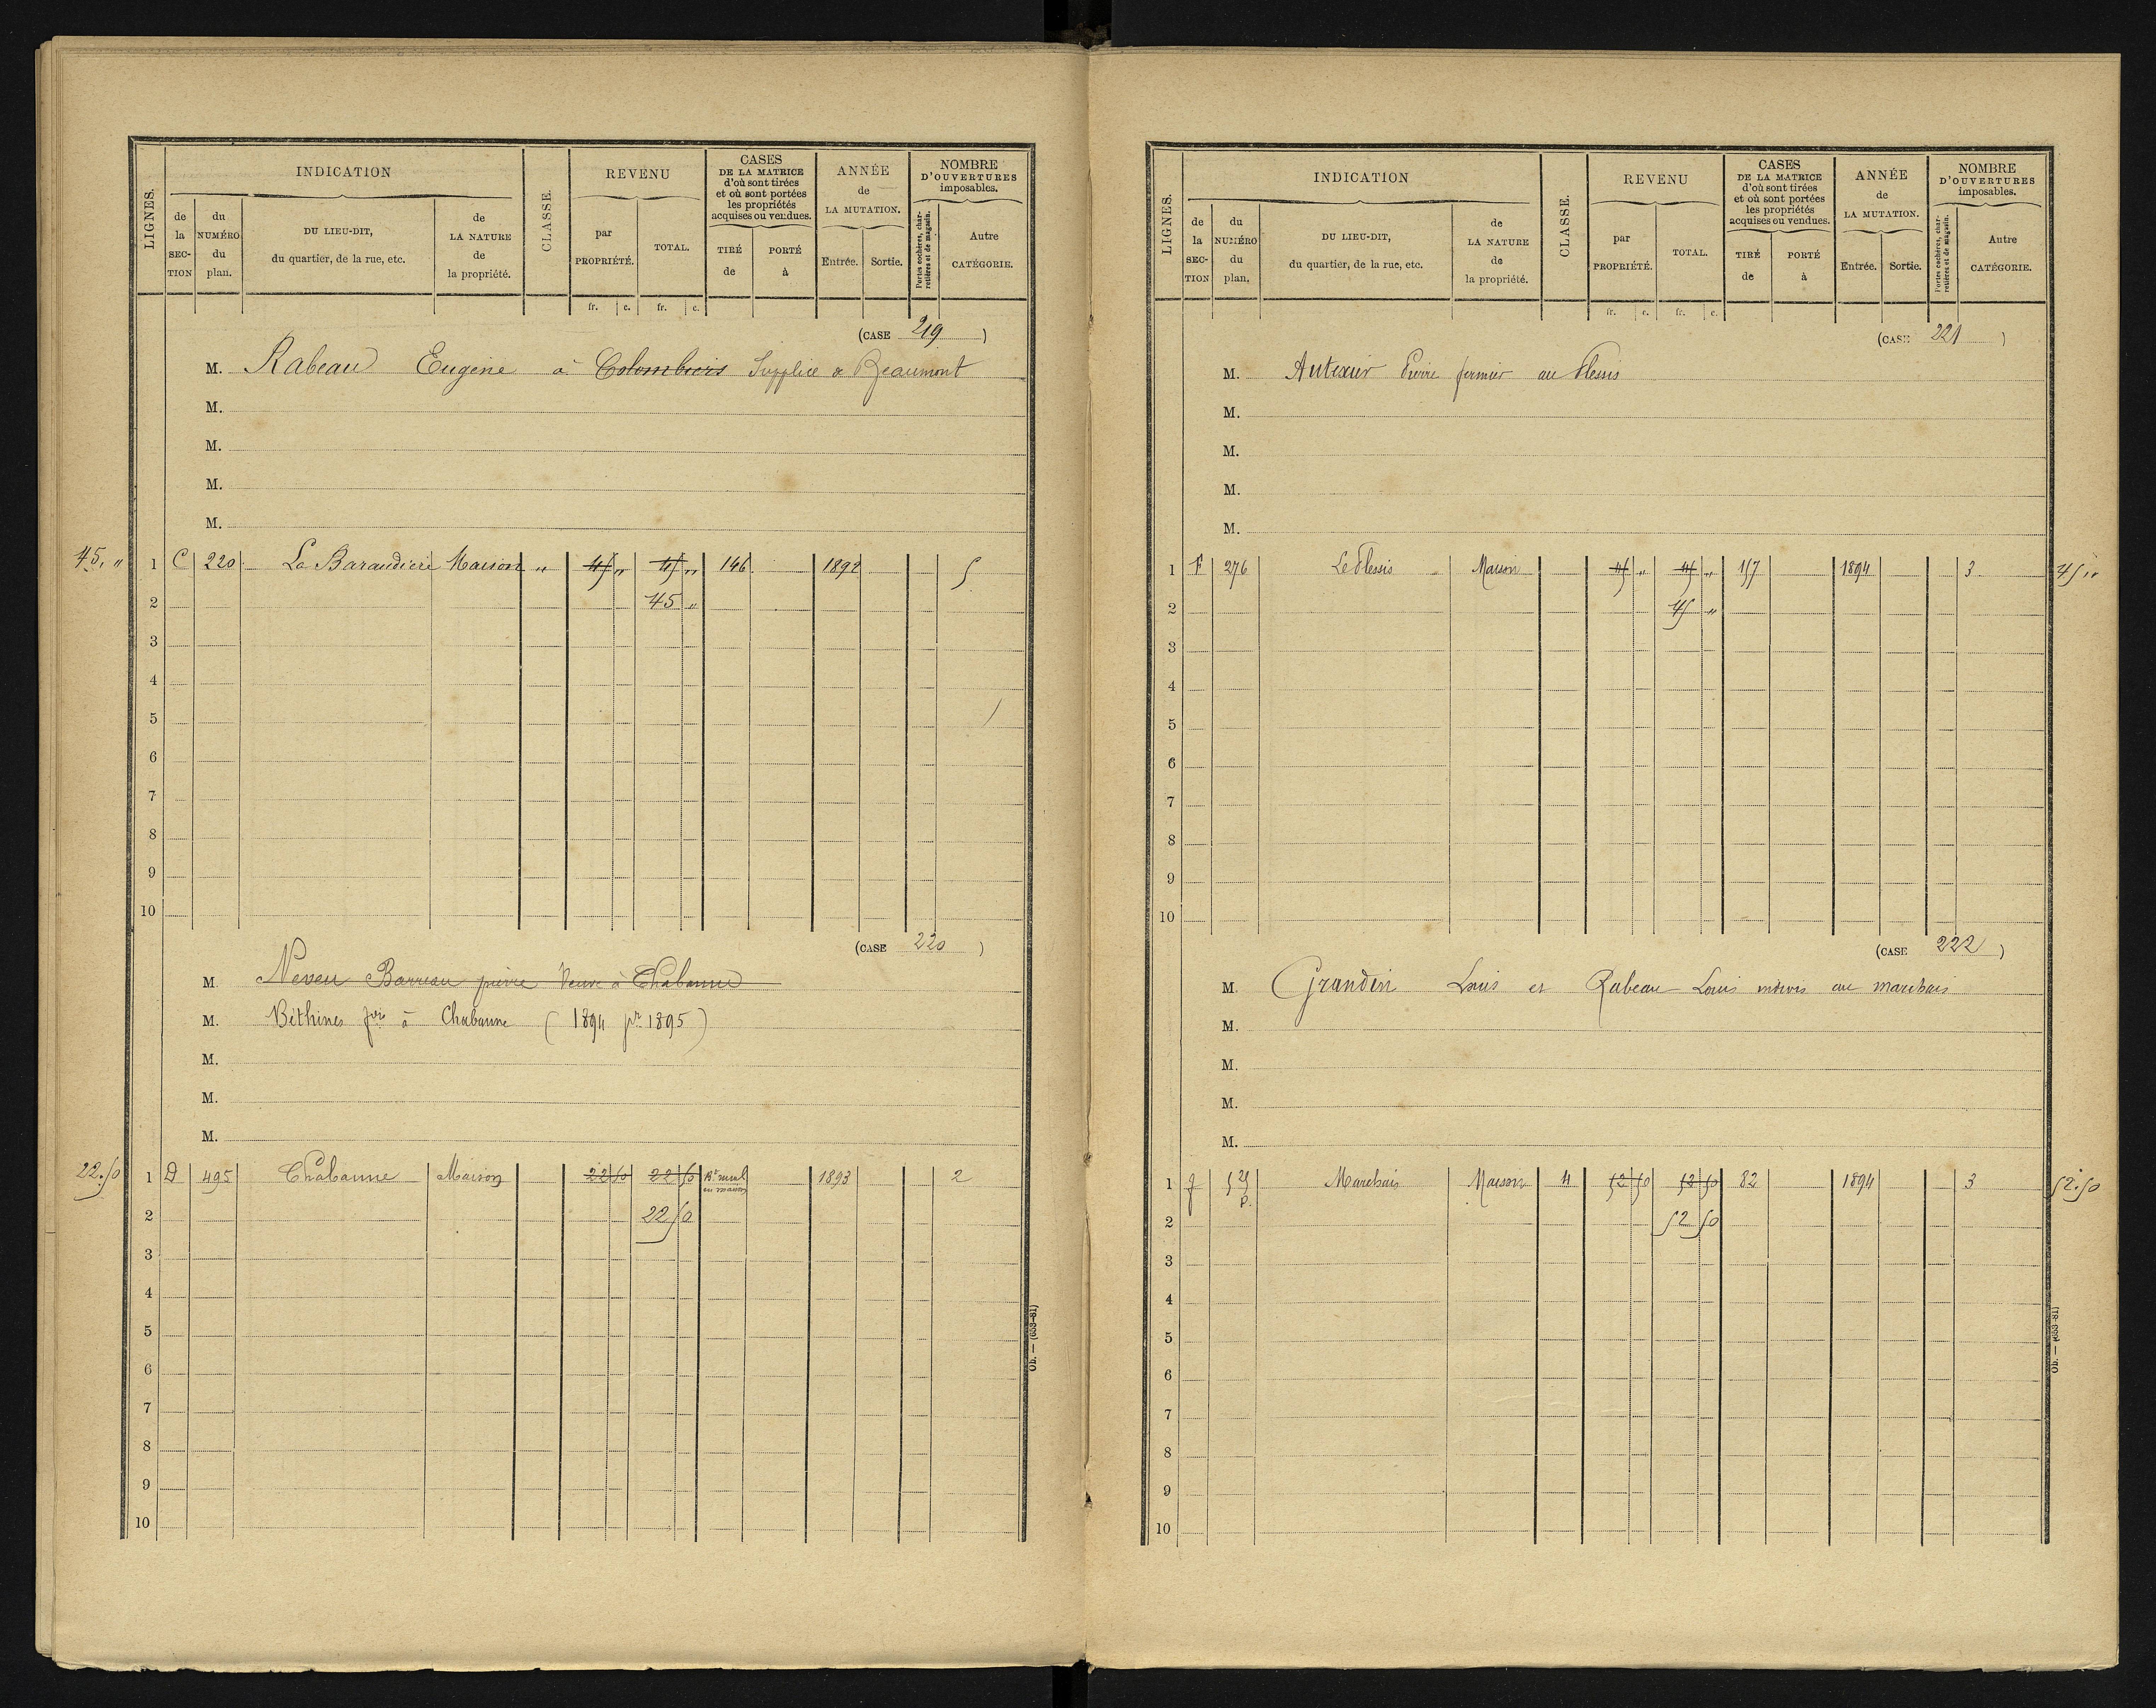 LIGNES.
INDICATION
de la SECTION
du NUMÉRO du plan.
DU LIEU-DIT, du quartier, de la rue, etc.
de LA NATURE de la propriété.
CLASSE.
REVENU
par PROPRIÉTÉ.
TOTAL.
CASES DE LA MATRICE d'où sont tirées et où sont portées les propriétés acquises ou vendues.
TIRÉ de
PORTÉ à
ANNÉE de LA MUTATION.
Entrée.
Sortie.
NOMBRE D'OUVERTURES imposables.
Portes cochères, charretières et de magasin.
Autre CATÉGORIE.
fr. c. fr. c.
(CASE 219 )
M. Rabeau Eugène à Colombiers Supplice de Beaumont
M.
M.
M.
M.
45. " 1 C 220 La Baraudiere Maison " 45 " 45 " 146 1892 5
2 45 "
3
4
5
6
7
8
9
10
(CASE 220 )
M Neveu Barreau pierre Veuve à Chabanne
M. Béthines à Chabanne ( 1894 pr 1895 )
M.
M.
M.
22.50 1 D 495 Chabanne Maison 22 50 22 50 en maison 1893 2
2 22 50
3
4
5
6
7
8
9
10
Ob. — (653-81)
LIGNES.
INDICATION
de la SECTION
du NUMÉRO du plan.
DU LIEU-DIT, du quartier, de la rue, etc.
de LA NATURE de la propriété.
CLASSE.
REVENU
par PROPRIÉTÉ.
TOTAL.
CASES DE LA MATRICE d'où sont tirées et où sont portées les propriétés acquises ou vendues.
TIRÉ de
PORTÉ à
ANNÉE de LA MUTATION.
Entrée.
Sortie.
NOMBRE D'OUVERTURES imposables.
Portes cochères, charretières et de magasin.
Autre CATÉGORIE.
fr. c. fr. c.
(CASE 221 )
M. Pierre fermier au Plessis
M.
M.
M.
M.
1 F 276 Le Plessis Maison 45 " 45 " 157 1894 3 45 "
2 45 "
3
4
5
6
7
8
9
10
(CASE 222 )
M. Grandin Louis et Rabeau Louis indivis au marchais
M.
M.
M.
M.
1 Marchais Maison 4 52 50 52 50 82 1894 3 52.50
2 52 50
3
4
5
6
7
8
9
10
Ob. — (653-81)